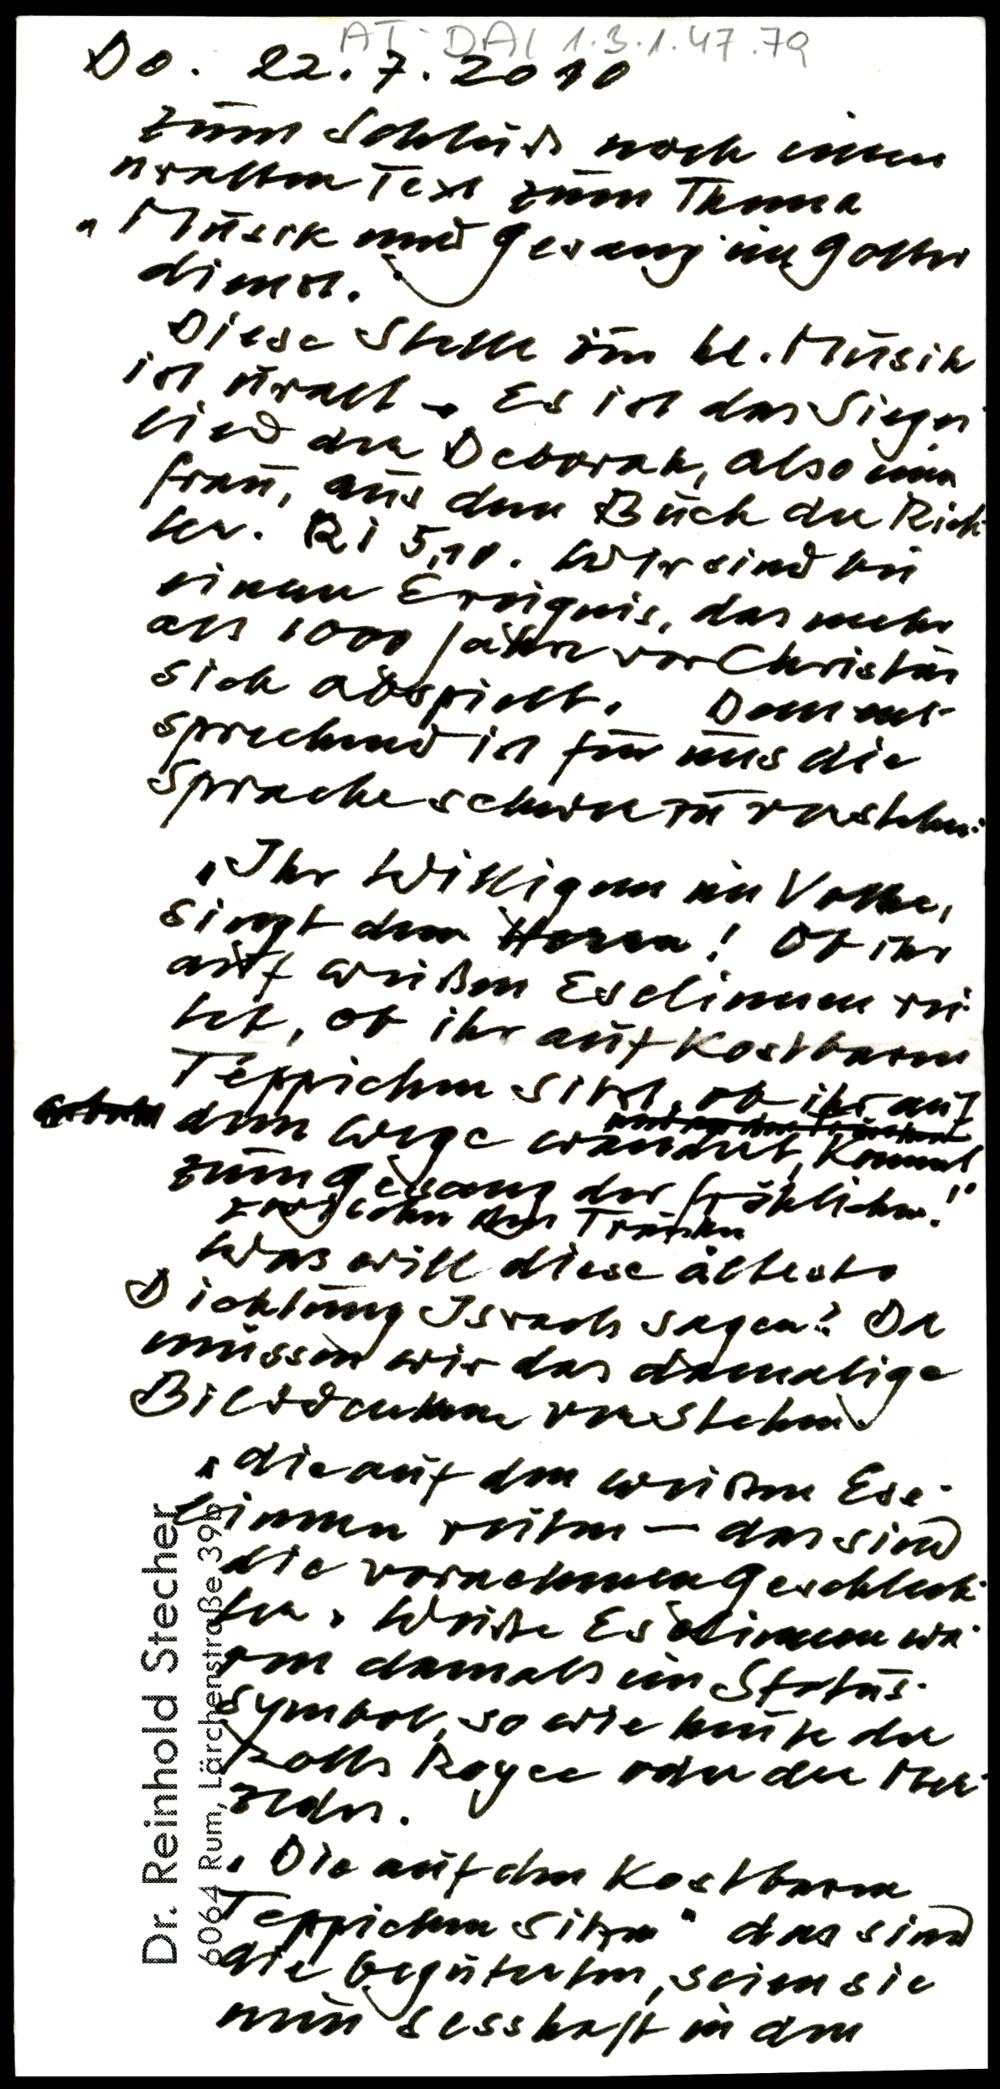 AT-DAI 1.3.1.47.79
Do. 22.7.2010
zum Schluß noch einen
uralten Text zum Thema
"Musik und Gesang im Gottes
dienst.
Diese Stelle zur hl. Musik
ist uralt. Es ist das Sieges
lied der Deborah, also einer
Frau, aus dem Buch der Rich
ter. Ri 5,10. Wir sind bei
einem Ereignis, das mehr
als 1000 Jahre vor Christus
sich abspielt. Dement
sprechend ist für uns die
Sprache schwer zu verstehen:
"Ihr Willigen im Volke,
singt dem Herrn! Ob ihr
auf weißen Eselinnen rei
tet, ob ihr auf kostbaren
Teppichen sitzt, ob ihr auf
dem Wege wandert, kommt
zum Gesang der Fröhlichen!"
zwischen den Tränken
Was will diese älteste
Dichtung Israels sagen? Da
müssen wir das damalige
Bilddenken verstehen
"die auf den weißen Ese-
linnen reiten — das sind
die vornehmen Geschlech
ter. Weiße Eselinnen wa
ren damals ein Status-
symbol, so wie heute der
Rolls Royce oder der Mer
zedes.
"Die auf den kostbaren
Teppichen sitzen" das sind
die Begüterten, seien sie
nun sesshaft in den
Dr. Reinhold Stecher
6064 Rum, Lärchenstraße 39b